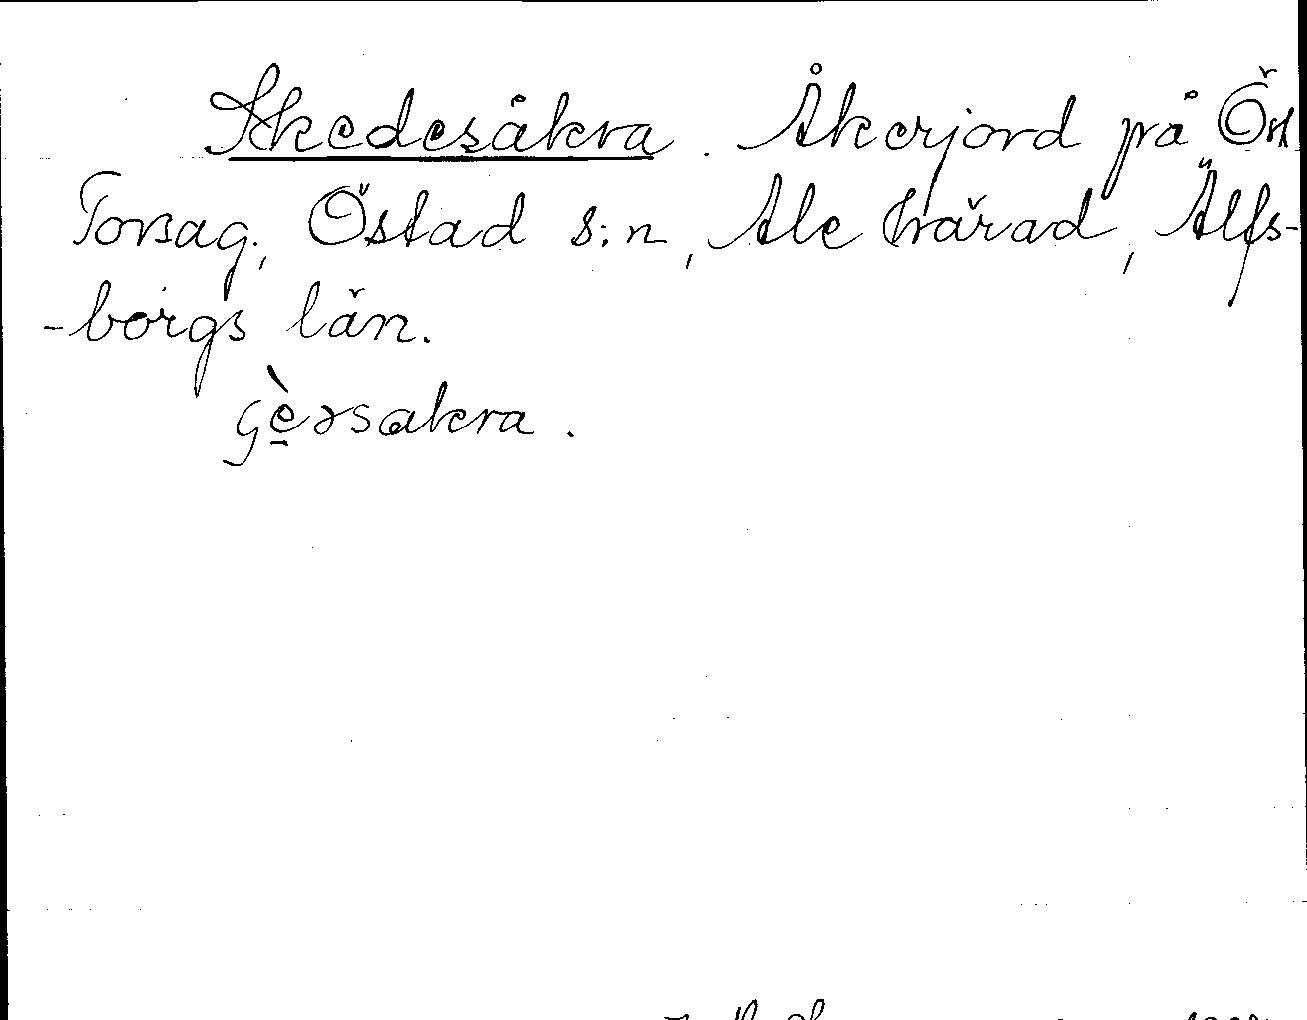 Skedesåkra. Åkerjord på Öst
Torsag, Östad s:n, Ale härad, Älfs-
-borgs län.